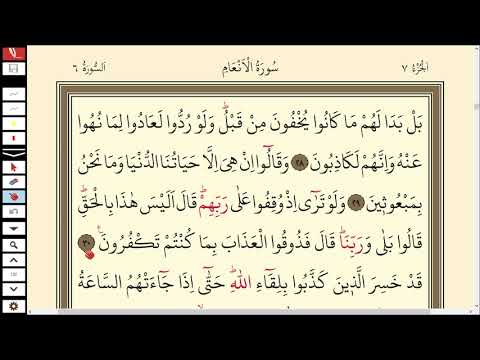 اَلسُّورَةُ ٦ سُورَةُ الْاَنْعَامِ اَلْجُزْءُ ٧
بَلْ بَدَا لَهُمْ مَا كَانُوا يُخْفُونَ مِنْ قَبْلُۜ وَلَوْ رُدُّوا لَعَادُوا لِمَا نُهُوا
عَنْهُ وَاِنَّهُمْ لَكَاذِبُونَ ﴿٢٨﴾ وَقَالُٓوا اِنْ هِيَ اِلَّا حَيَاتُنَا الدُّنْيَا وَمَا نَحْنُ
بِمَبْعُوث۪ينَ ﴿٢٩﴾ وَلَوْ تَرٰٓى اِذْ وُقِفُوا عَلٰى رَبِّهِمْۜ قَالَ اَلَيْسَ هٰذَا بِالْحَقِّۜ
قَالُوا بَلٰى وَرَبِّنَاۜ قَالَ فَذُوقُوا الْعَذَابَ بِمَا كُنْتُمْ تَكْفُرُونَ۟ ﴿٣٠﴾
قَدْ خَسِرَ الَّذ۪ينَ كَذَّبُوا بِلِقَٓاءِ اللّٰهِۜ حَتّٰٓى اِذَا جَٓاءَتْهُمُ السَّاعَةُ